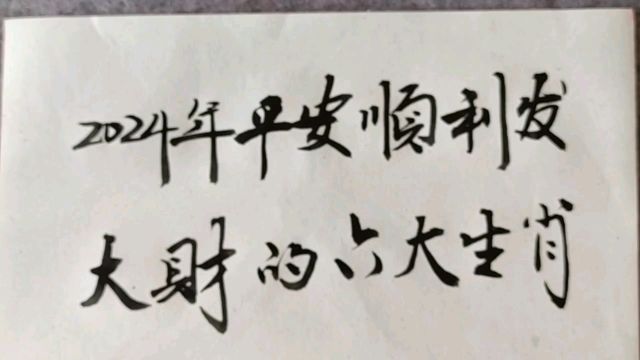 2024年平安顺利发
大财的六大生肖